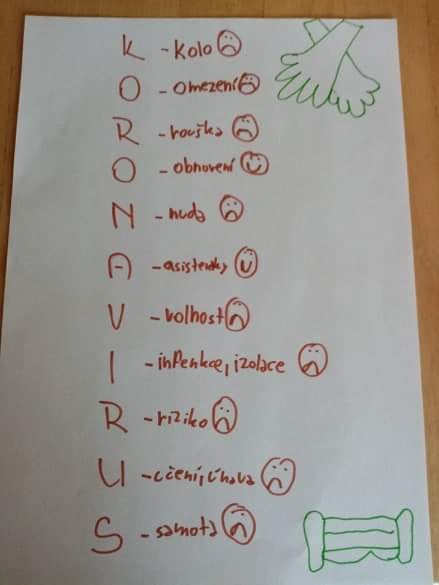 K - kolo
O - omezení
R - rouška
O - obnovení
N - nuda
A - asistentky
V - volnost
I - infenkce, izolace
R - riziko
U - učení, únava
S - samota